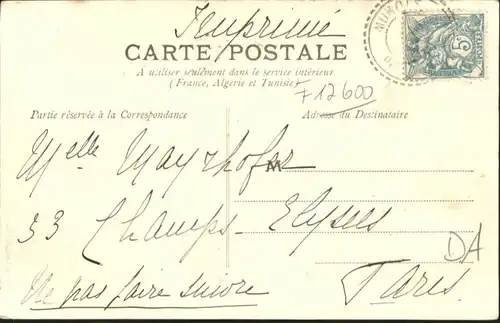 Imprimé
CARTE POSTALE
A utiliser seulement dans le service intérieur
(France, Algérie et Tunisie)
F 12600
Partie réservée à la Correspondance
Adresse du Destinataire
5
Melle Mayrhofer
M
33 Champs-Elysées
DA
Paris
Ne pas faire suivre